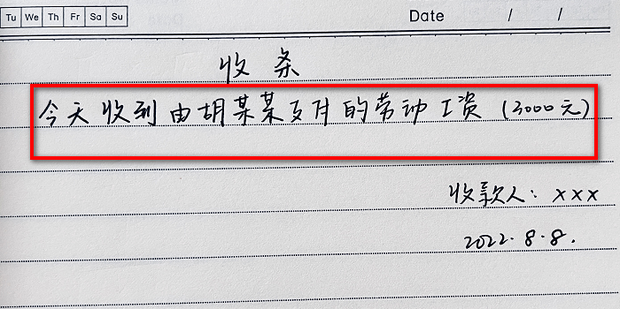 Tu We Th Fr Sa Su
Date / /
收条
今天收到由胡某某支付的劳动工资(3000元)
收款人：×××
2022.8.8.